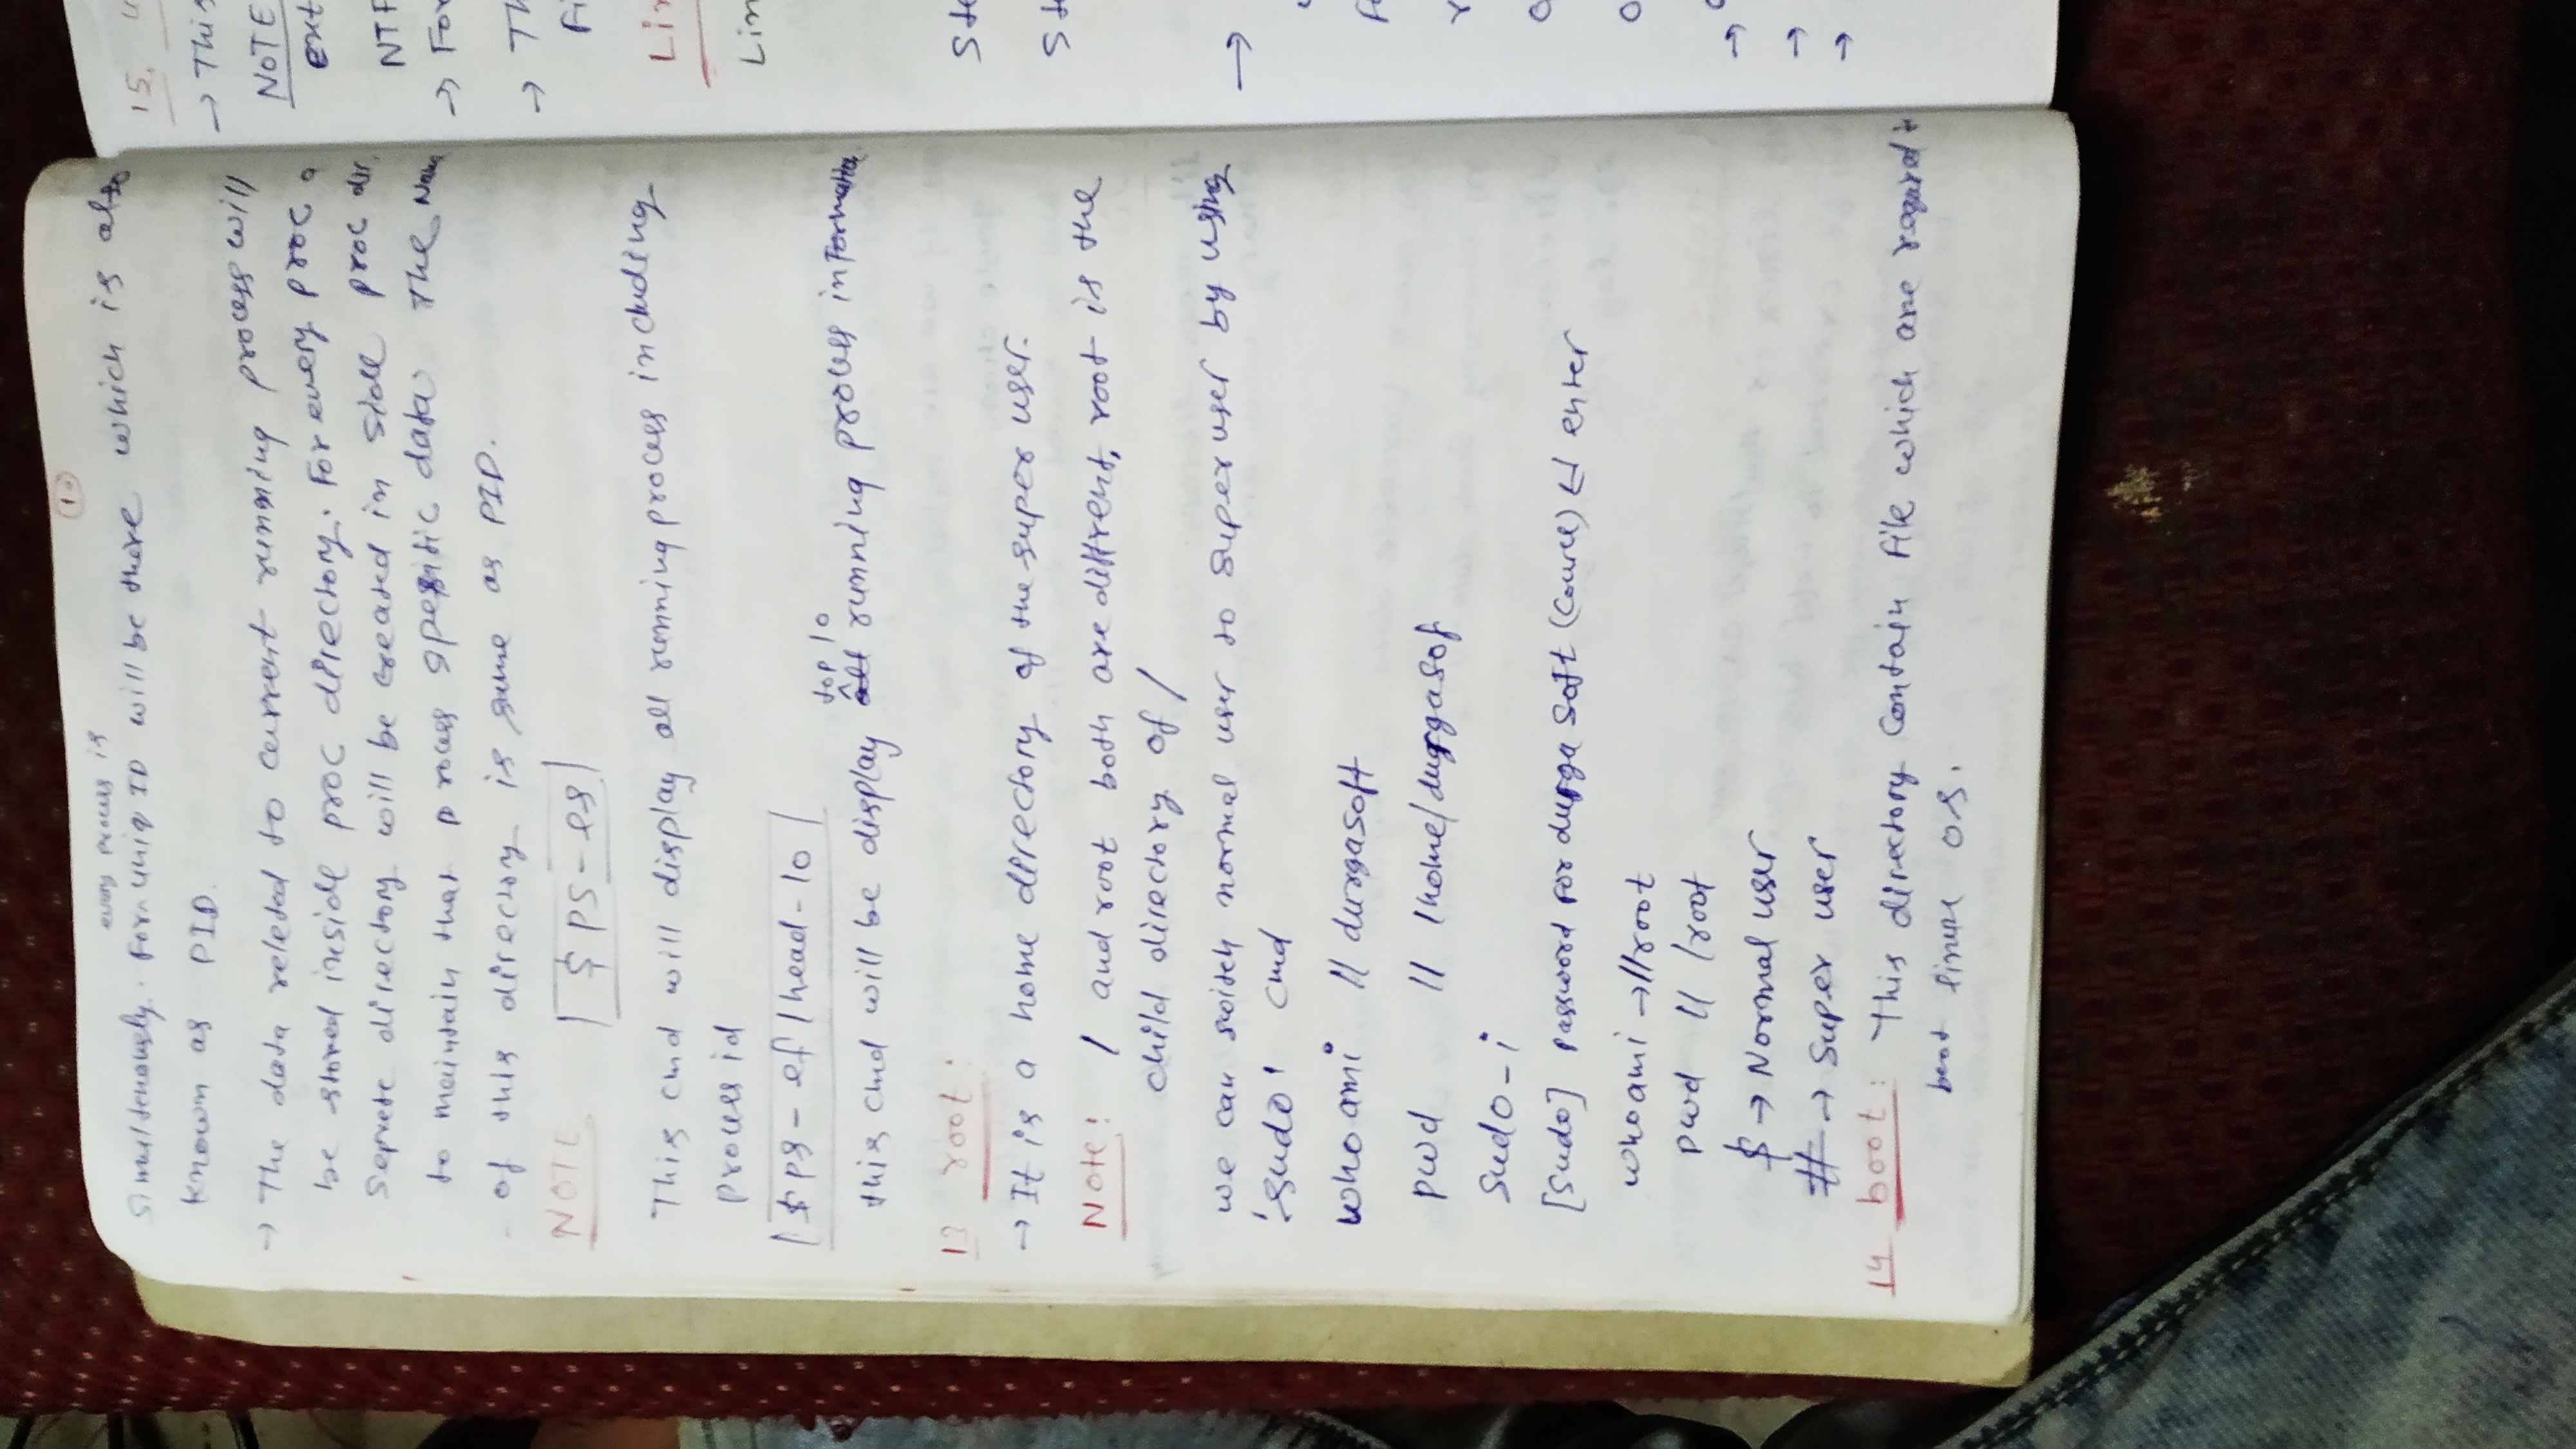 10
every process is
simultenously. For uniq ID will be there which is also
known as PID.
→ The data releted to current running process will
be stored inside proc directory. For every proc a
Seprete directory will be created in side proc dir.
to maintain that process spesific data The Name
of this directory is same as PID.
NOTE $ ps-es
This cmd will display all running process including
process id
$ps-ef/head-10
top 10
this cmd will be display all running process information
13 root:
→ It is a home directory of the super user.
Note: / and root both are diffrent, root is the
child directory of /
we can switch normal user to super user by using
'sudo' cmd
whoami // durgasoft
pwd // /home/durgasof
sudo-i
[Sudo] password for durga soft ↵ enter
whoami →//root
pwd // /root
$ → Normal user
# → Super user
14 boot: This directory contain file which are
boot linux os.
15.
→ This
NOTE
ext
NTF
→ For
→ Th
Fi
Lin
Lin
Ste
Ste
→
→
→
→